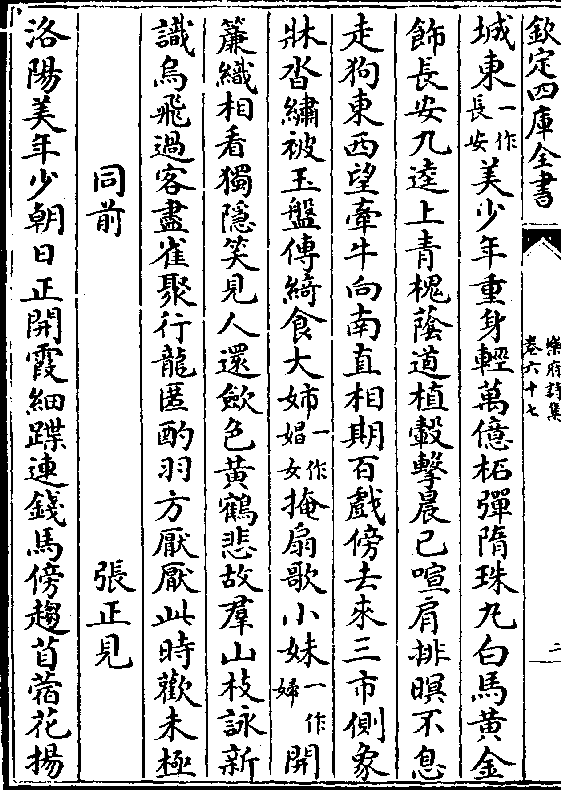 欽定四庫全書
樂府詩集
卷六十七
二
城東一作長安美少年重身輕萬億柘彈隋珠丸白馬黃金
飾長安九逵上青槐蔭道植轂擊晨已喧肩排暝不息
走狗東西望牽牛向南直相期百戲傍去來三市側象
牀沓繡被玉盤傳綺食大姊一作娼女掩扇歌小妹一作婦開
簾織相看獨隱笑見人還歛色黃鶴悲故羣山枝詠新
識烏飛過客盡雀聚行龍匿酌羽方厭厭此時歡未極
同前 張正見
洛陽美年少朝日正開霞細蹀連錢馬傍趨苜蓿花揚